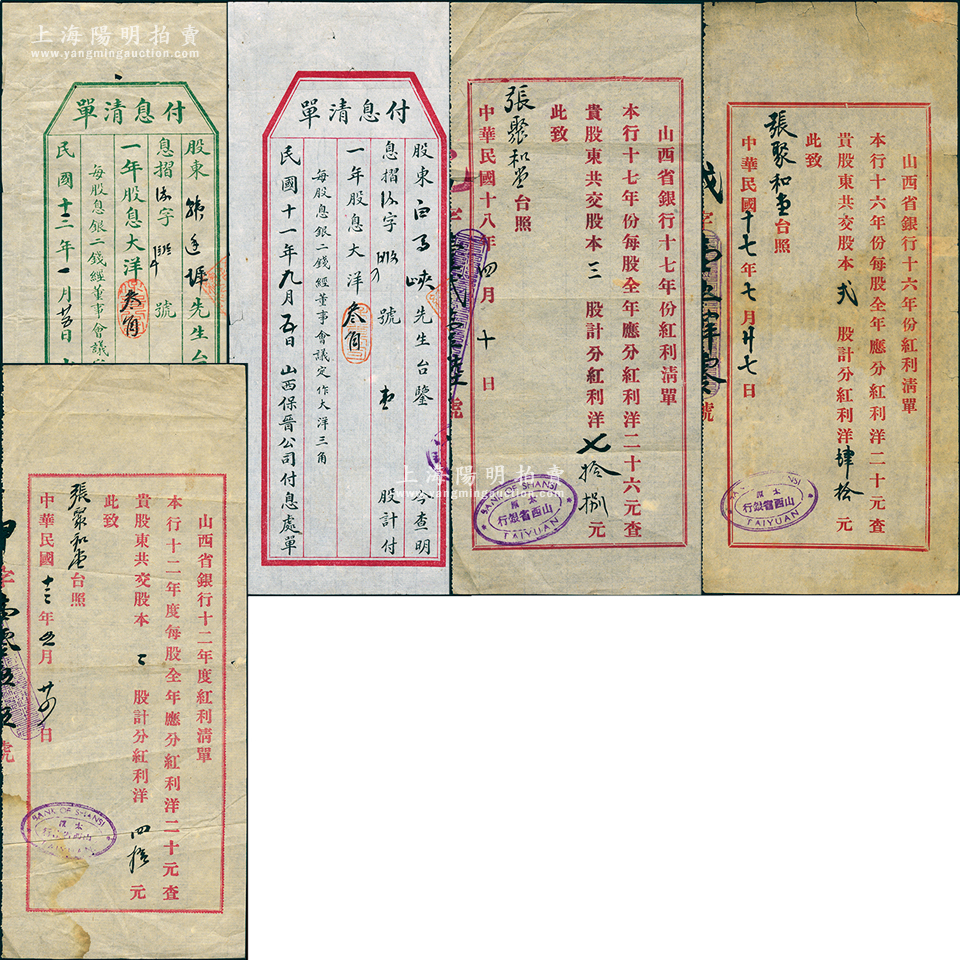 上海陽明拍賣
www.yangmingauction.com
付息清單
股東
先生台
息摺
字
號
一年股息大洋叁角
每股息銀二錢經董事會議
民國十三年一月廿五日
付息清單
股東白馬峽先生台鑒
今查明
息摺
字
號
壹
股計付
一年股息大洋叁角
每股息銀二錢經董事會議定作大洋三角
民國十一年九月五日
山西保晉公司付息處單
山西省銀行十七年份紅利清單
本行十七年份每股全年應分紅利洋二十六元查
貴股東共交股本三股計分紅利洋七拾捌元
此致
張聚和堂台照
中華民國十八年四月十日
號
BANK OF SHANSI
太原
山西省銀行
TAIYUAN
山西省銀行十六年份紅利清單
本行十六年份每股全年應分紅利洋二十元查
貴股東共交股本弍股計分紅利洋肆拾元
此致
張聚和堂台照
中華民國十七年七月廿七日
號
BANK OF SHANSI
太原
山西省銀行
TAIYUAN
上海陽明拍賣
www.yangmingauction.com
山西省銀行十二年度紅利清單
本行十二年度每股全年應分紅利洋二十元查
貴股東共交股本二股計分紅利洋四拾元
此致
張聚和堂台照
中華民國十三年五月
日
字
號
BANK OF SHANSI
太原
TAIYUAN